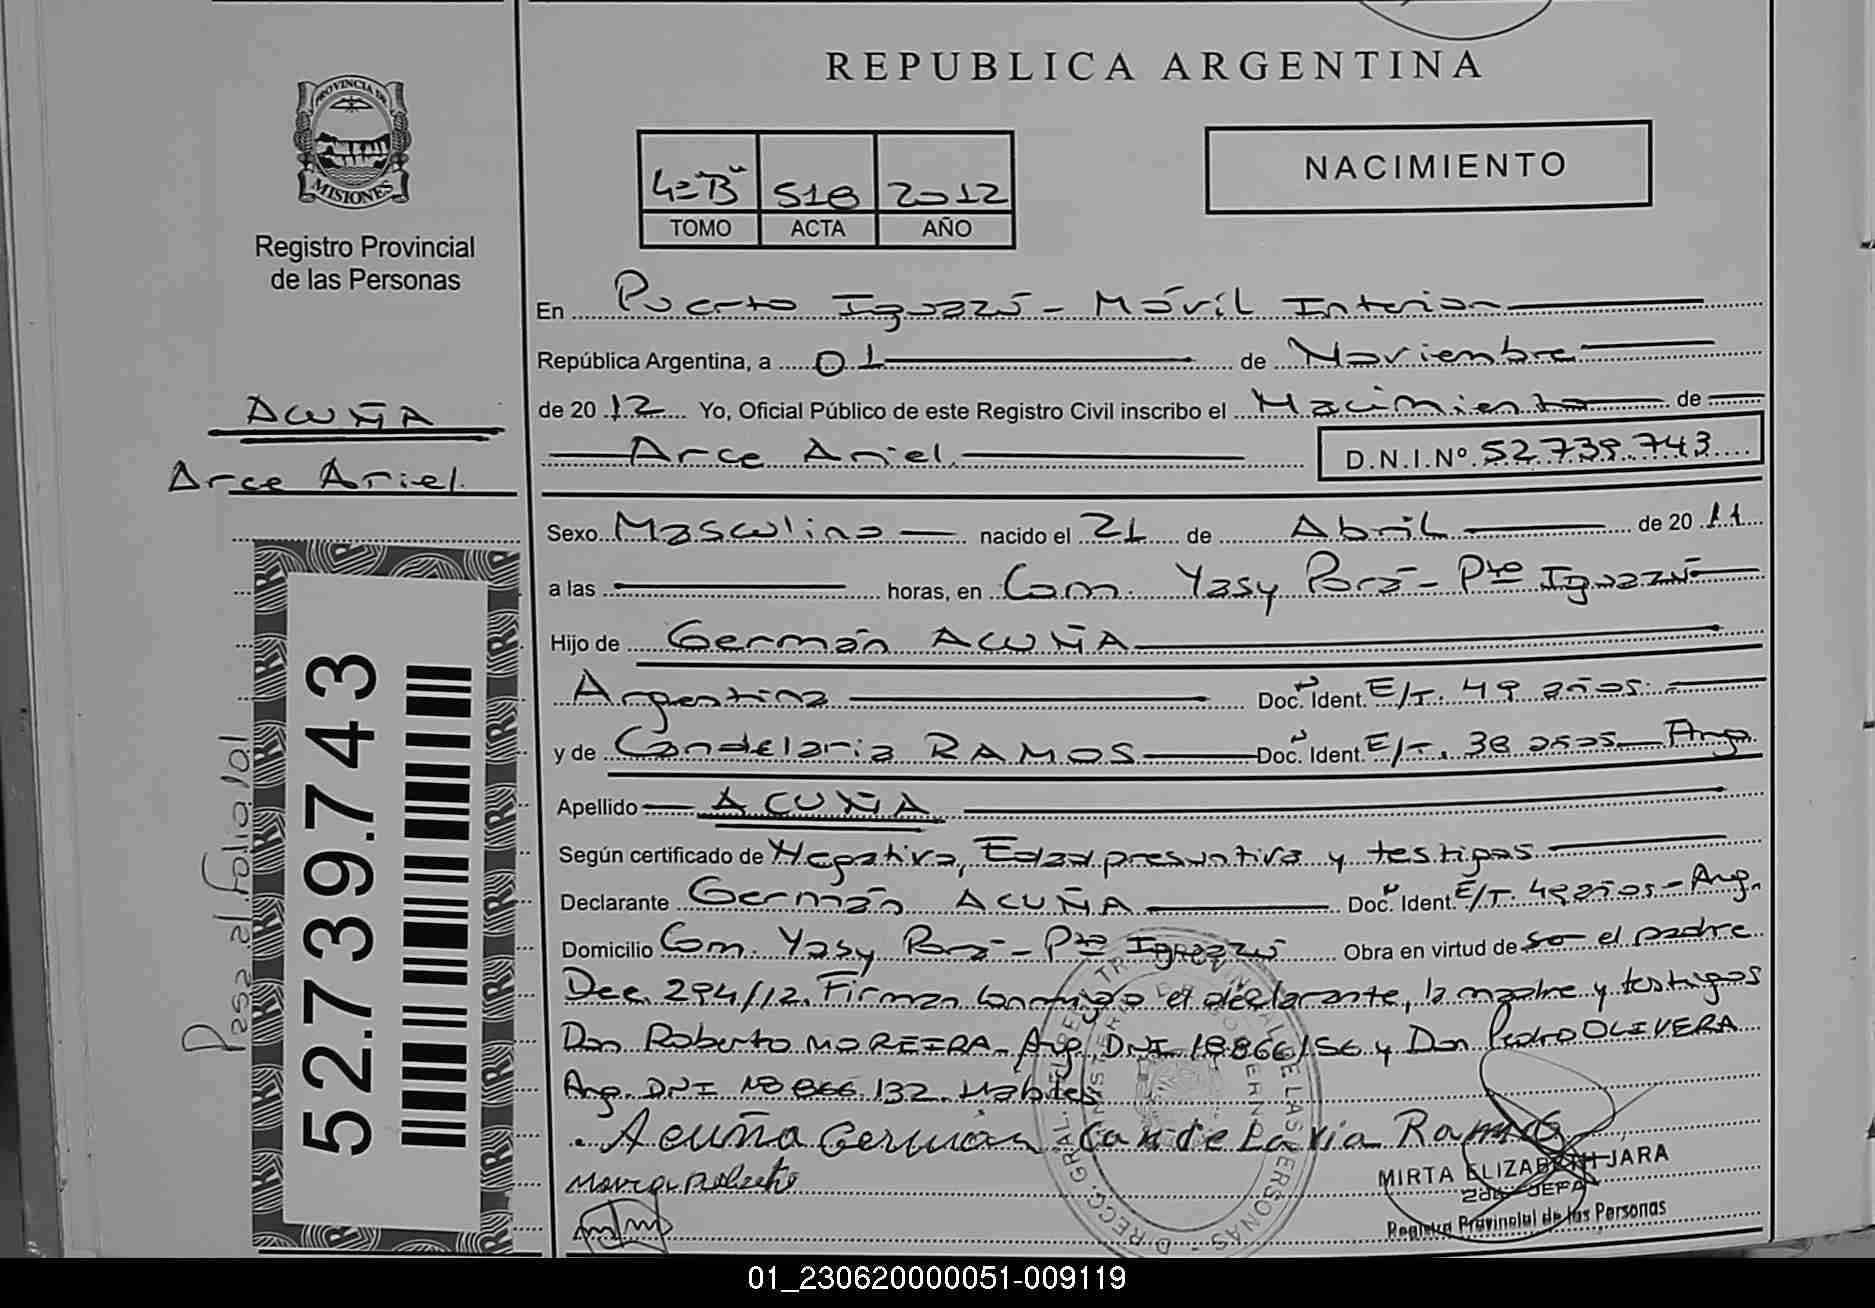 REPUBLICA ARGENTINA
PROVINCIA DE
MISIONES
Registro Provincial
de las Personas
4="B" 518 2012
TOMO ACTA AÑO
NACIMIENTO
En Puerto Iguazú - Móvil Interior
República Argentina, a 01 de Noviembre
de 2012 Yo, Oficial Público de este Registro Civil inscribo el Nacimiento de
Arce Ariel D.N.I.Nº 52.739.743
ACUÑA
Arce Ariel
Sexo Masculino nacido el 21 de Abril de 2011
a las horas, en Com. Yasy Porá - Pto Iguazú
Hijo de Germán ACUÑA
Argentina Doc. Ident. E/T. 49 años
y de Candelaria RAMOS Doc. Ident. E/T. 38 años Arg.
Apellido ACUÑA
Según certificado de Negativa, Edad presuntiva y testigos
Declarante Germán ACUÑA Doc. Ident. E/T. 49 años - Arg.
Domicilio Com. Yasy Porá - Pto Iguazú Obra en virtud de so el padre
Dec. 294/12. Firman conmigo el declarante, la madre y testigos
Don Roberto MOREIRA - Arg. DNI 18866156 y Don Pedro OLIVERA
Arg. DNI 18.866.132. Habiles
Acuña Germán Candelaria Ramos
MIRTA ELIZABETH JARA
2da JEFA
Registro Provincial de las Personas
52.739.743
Pasa al folio 101
01_230620000051-009119